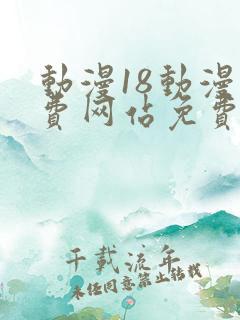 動漫18動漫
費网佔免費
千載流年
未经同意禁止转载